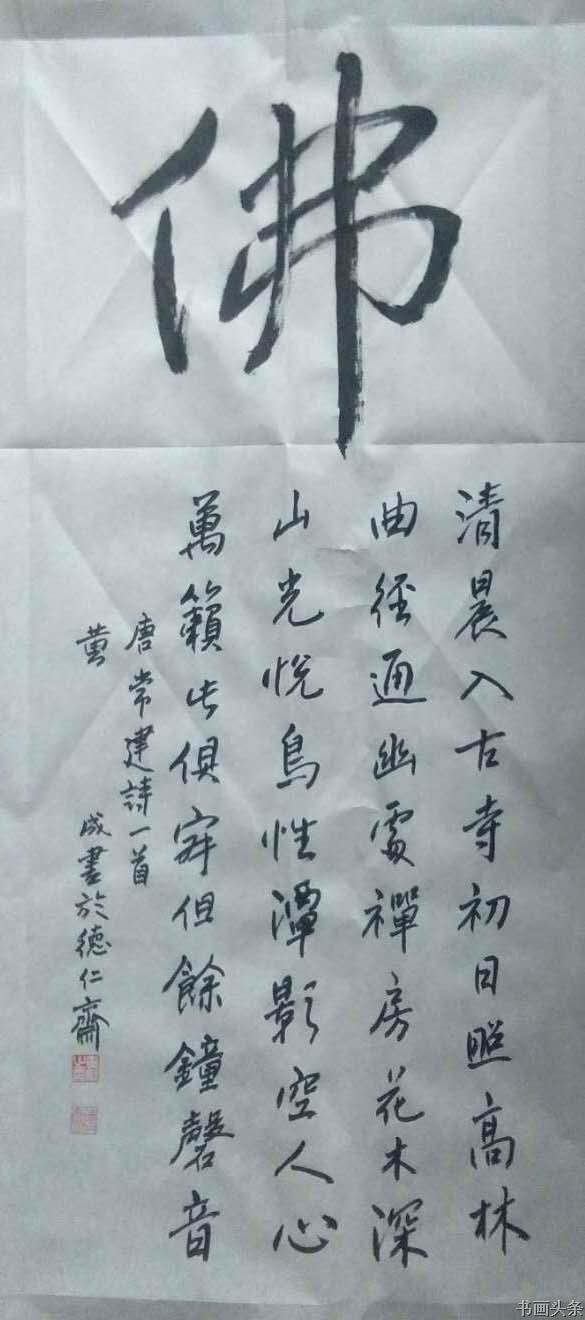 佛
清晨入古寺初日照高林
曲径通幽處禪房花木深
山光悦鳥性潭影空人心
萬籟此俱寂但餘鐘磬音
唐常建詩一首
黄 成書於德仁齋
书画头条